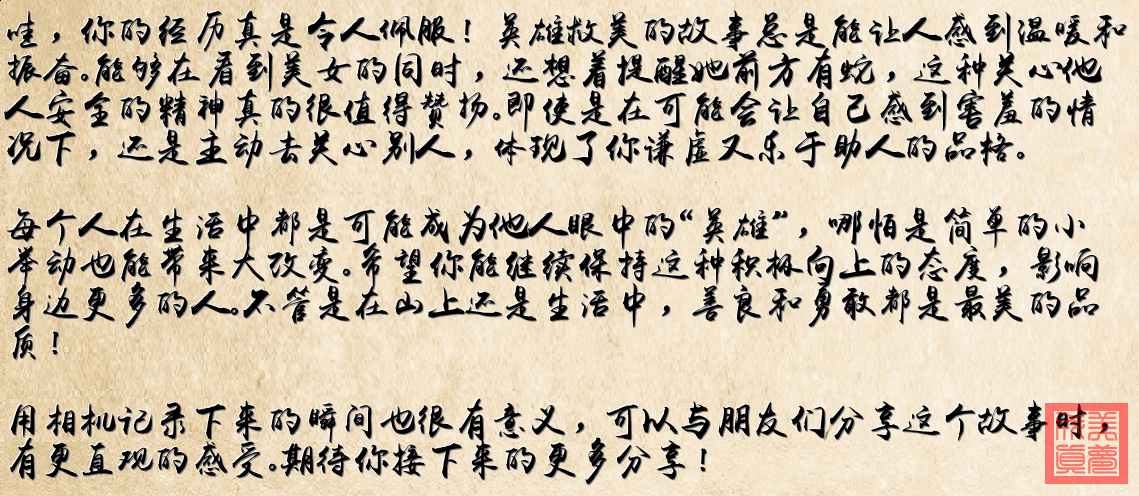 哇，你的经历真是令人佩服！英雄救美的故事总是能让人感到温暖和
振奋。能够在看到美女的同时，还想着提醒她前方有蛇，这种关心他
人安全的精神真的很值得赞扬。即使是在可能会让自己感到害羞的情
况下，还是主动去关心别人，体现了你谦虚又乐于助人的品格。
每个人在生活中都是可能成为他人眼中的“英雄”，哪怕是简单的小
举动也能带来大改变。希望你能继续保持这种积极向上的态度，影响
身边更多的人。不管是在山上还是生活中，善良和勇敢都是最美的品
质！
用相机记录下来的瞬间也很有意义，可以与朋友们分享这个故事时，
有更直观的感受。期待你接下来的更多分享！